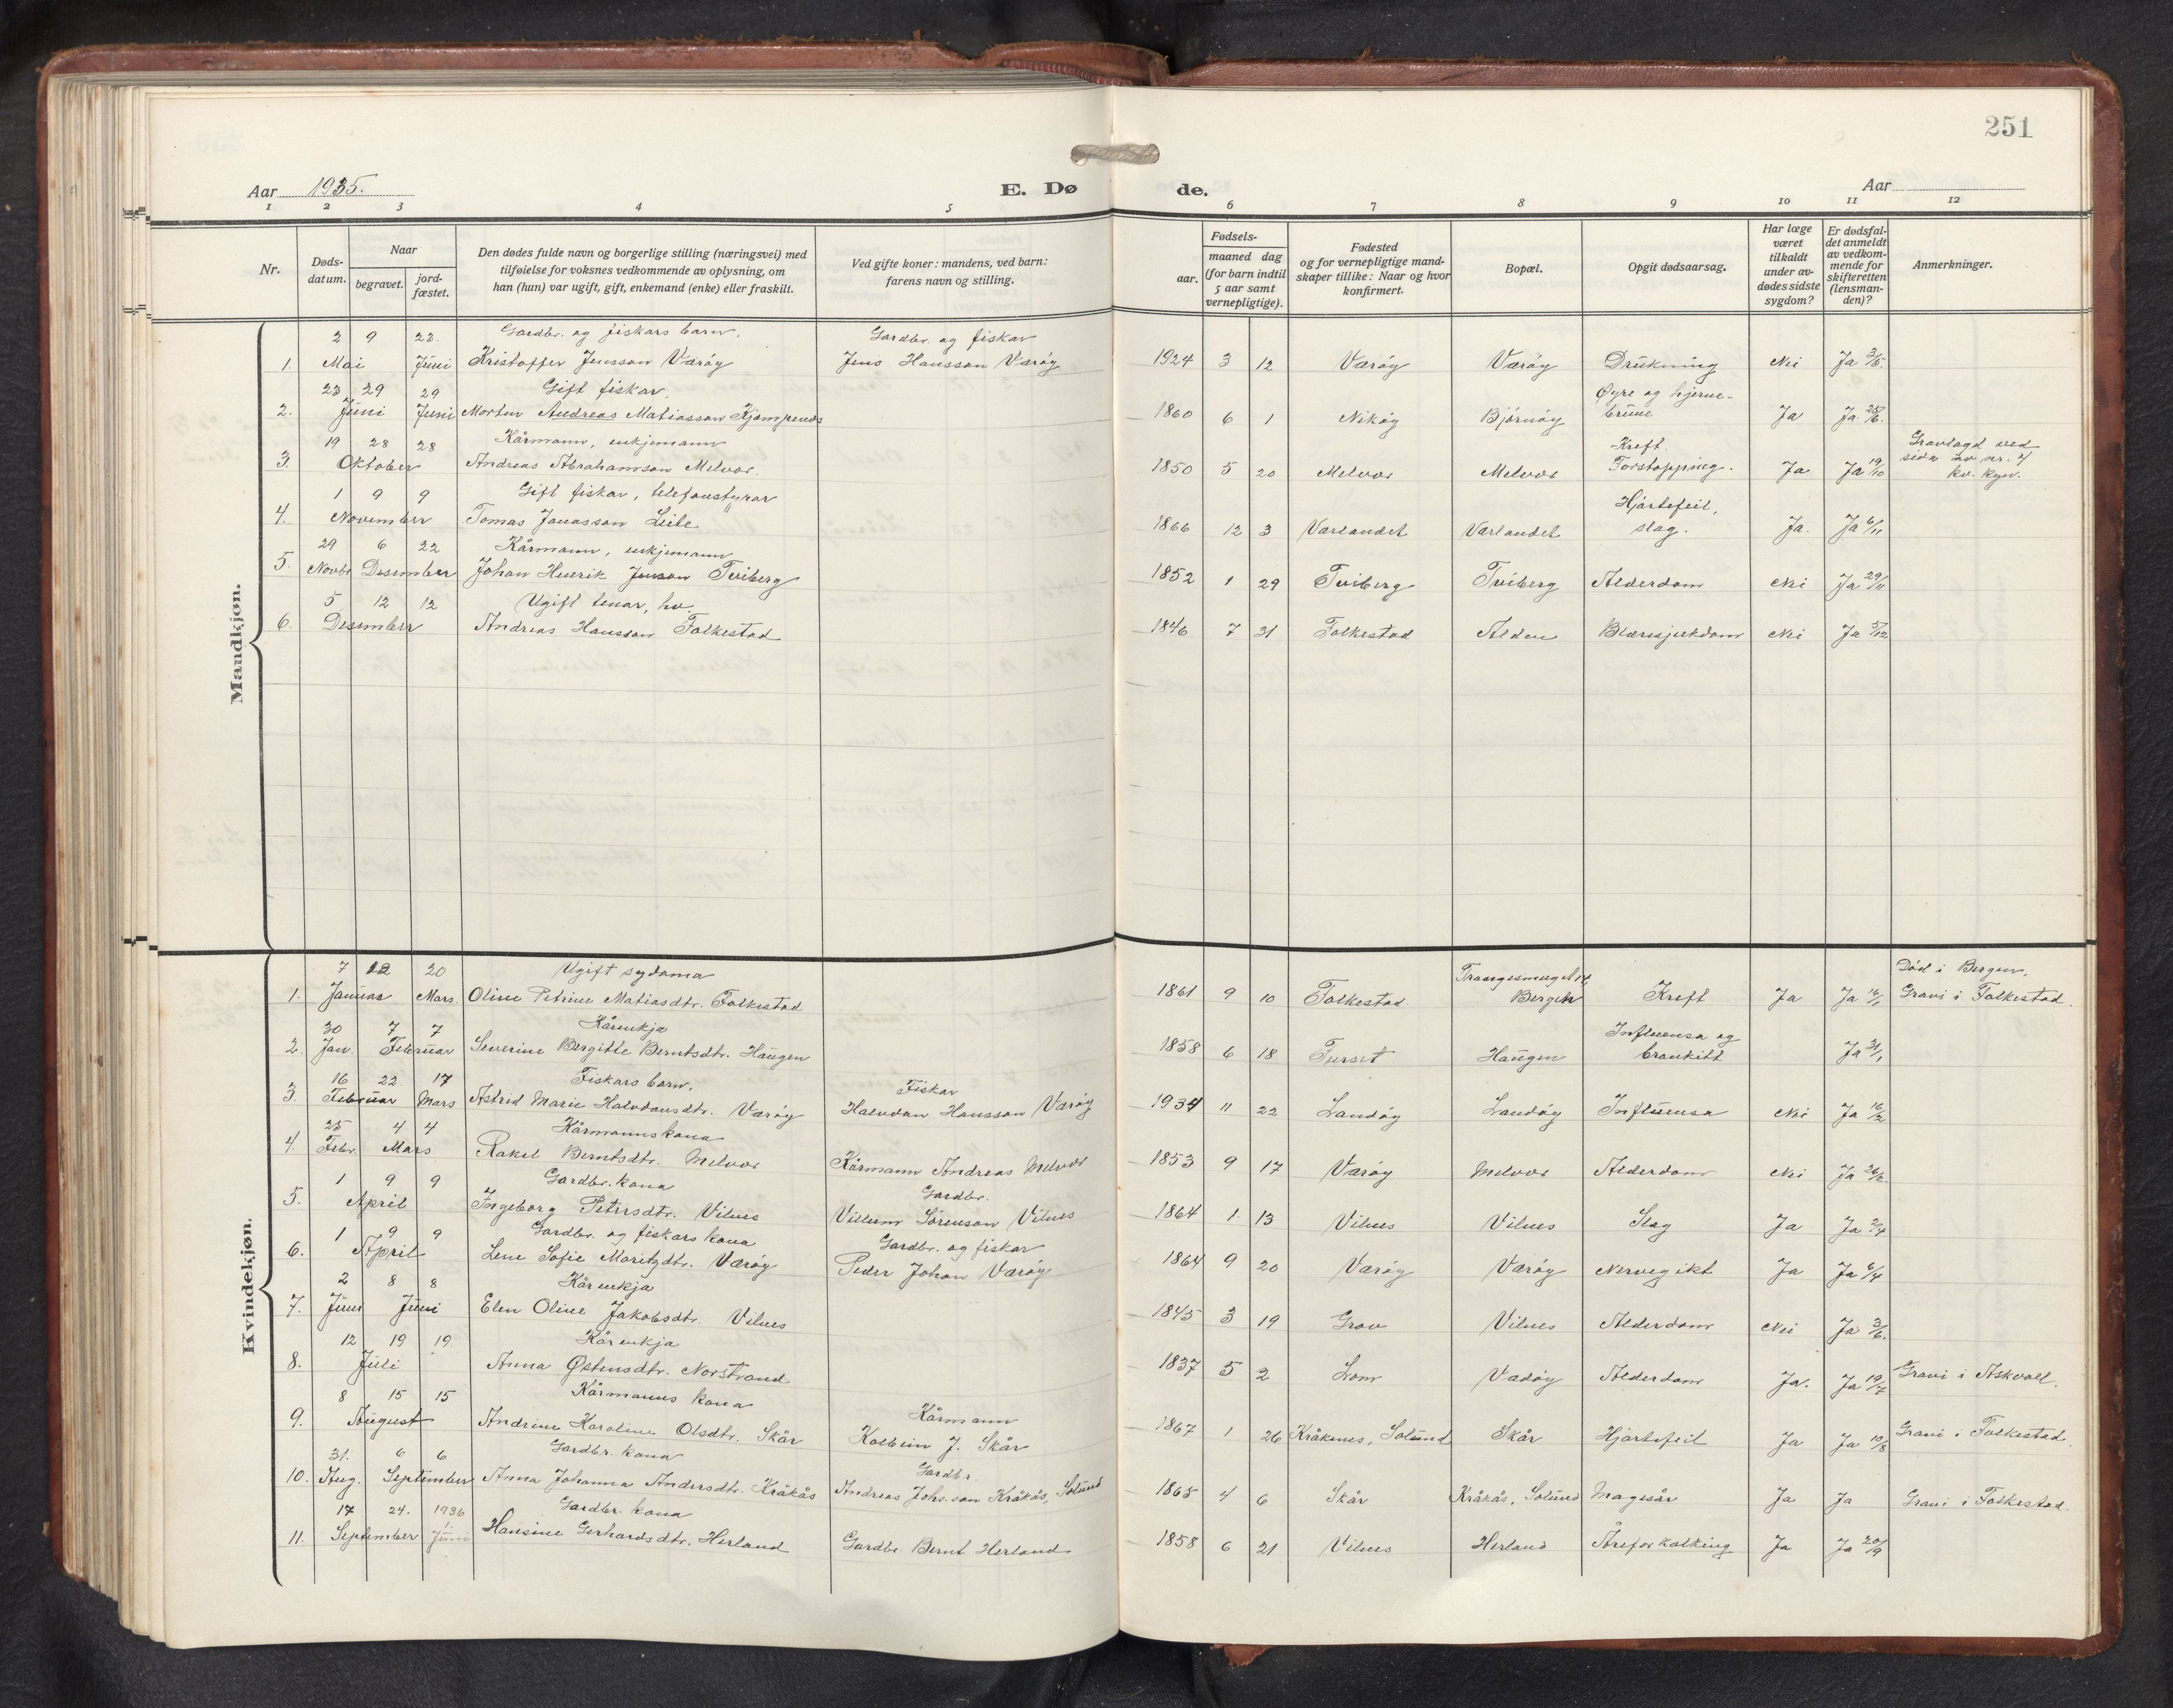 251
Aar 1935.
E. Dø
de.
Aar
1 2 3 4 5 6 7 8 9 10 11 12
Nr.
Døds-
datum.
Naar
begravet.
jord-
fæstet.
Den dødes fulde navn og borgerlige stilling (næringsvei) med
tilføielse for voksnes vedkommende av oplysning, om
han (hun) var ugift, gift, enkemand (enke) eller fraskilt.
Ved gifte koner: mandens, ved barn:
farens navn og stilling.
Fødsels-
aar.
maaned dag
(for barn indtil
5 aar samt
vernepligtige).
Fødested
og for vernepligtige mand-
skaper tillike: Naar og hvor
konfirmert.
Bopæl.
Opgit dødsaarsag.
Har læge
været
tilkaldt
under av-
dødes sidste
sygdom?
Er dødsfal-
det anmeldt
av vedkom-
mende for
skifteretten
(lensman-
den)?
Anmerkninger.
Mandkjøn.
2 9 22. Gardbr. og fiskars barn. Gardbr. og fiskar
1. Mai Juni Kristoffer Jensson Værøy Jens Hansson Værøy 1924 3 12 Værøy Værøy Drukning Nei Ja 3/5.
23 29 29 Gift fiskar. Øyre og hjerne-
2. Juni Juni Morten Andreas Matiasson Kjempenes 1860 6 1 Nikøy Bjørnøy brune Ja Ja 25/6.
19 28 28 Kårmann, enkjemann Kreft Gravlagd ved
3. Oktober Andreas Abrahamson Melvær. 1850 5 20 Melvær Melvær Forstopping. Ja Ja 19/10 sida av nr. 4
kv. kyn.
1 9 9 Gift fiskar, telefonstyrar Hjartefeil,
4. November Tomas Jonasson Leite 1866 12 3 Værlandet Værlandet slag. Ja. Ja 6/11
29 6 22 Kårmann, enkjemann
5. Novbr Desember Johan Henrik Jenson Tviberg 1852 1 29 Tviberg Tviberg Alderdom Nei Ja 29/11
5 12 12 Ugift tenar, hv.
6. Desember Andreas Hansson Folkestad 1846 7 31 Folkestad Alden Blæresjukdom Nei Ja 5/12
Kvindekjøn.
7 12 20 Ugift sydama Traangesmug N 14, Død i Bergen.
1. Januar Mars Oline Petrine Matiasdtr. Folkestad 1861 9 10 Folkestad Bergen Kreft Ja Ja 16/1 Gravi i Folkestad.
30 7 7 Kårenkja Influensa og
2. Jan. Februar Severine Bergitte Berntsdtr. Haugen 1858 6 18 Turset Haugen bronkitt Ja 31/1
16 22. 17 Fiskars barn. Fiskar
3. Februar Mars Astrid Marie Halvdansdtr. Værøy Halvdan Hansson Værøy 1934 11 22 Landøy Landøy Influensa Nei Ja 16/2
25 4 4 Kårmannskona
4. Febr. Mars Rakel Berntsdtr. Melvær Kårmann Andreas Melvær 1853 9 17 Værøy Melvær Alderdom Nei Ja 26/2
1 9 9 Gardbr. kona Gardbr.
5. April Ingeborg Petersdtr. Vilnes Villum Sørenson Vilnes 1864 1 13 Vilnes Vilnes Slag Ja Ja 2/4
1 9 9 Gardbr. og fiskars kona Gardbr. og fiskar
6. April Lene Sofie Moritzdtr. Værøy Peder Johan Værøy 1864 9 20 Værøy Værøy Nervegikt Ja Ja 6/4
2 8 8 Kårenkja
7. Juni Juni Elen Oline Jakobsdtr. Vilnes 1845 3 19 Grov Vilnes Alderdom Nei Ja 3/6.
12 19 19. Kårenkja
8. Juli Anna Østensdtr. Norstrand 1837 5 2 Lom Vadøy Alderdom Ja. Ja 19/7 Gravi i Askvoll.
8 15 15 Kårmanns kona Kårmann
9. August Andrine Karoline Olsdtr. Skår Kolbein J. Skår 1867 1 26 Kråkenes, Solund Skår Hjartefeil Ja Ja 10/8 Gravi i Folkestad.
31. 6 6 Gardbr. kona Gardbr.
10. Aug. September Anna Johanna Andersdtr. Kråkås Andreas Johs.son Kråkås, Solund 1865 4 6 Skår Kråkås, Solund Magesår Ja Ja Gravi i Folkestad.
17 24. 1936 Gardbr. kona
1.
11. September Juni Hansine Gerhardsdtr. Herland Gardbr. Bernt Herland 1858 6 21 Vilnes Herland Åreforkalking Ja Ja 20/9